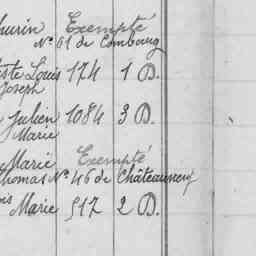 hurin Exempté
N° 61 de Combourg
iste Louis 174 1 D.
Joseph
Julien 1084 3 D.
Marie
Marie Exempté
Thomas N° 46 de Châteauneuf
Marie 517 2 D.